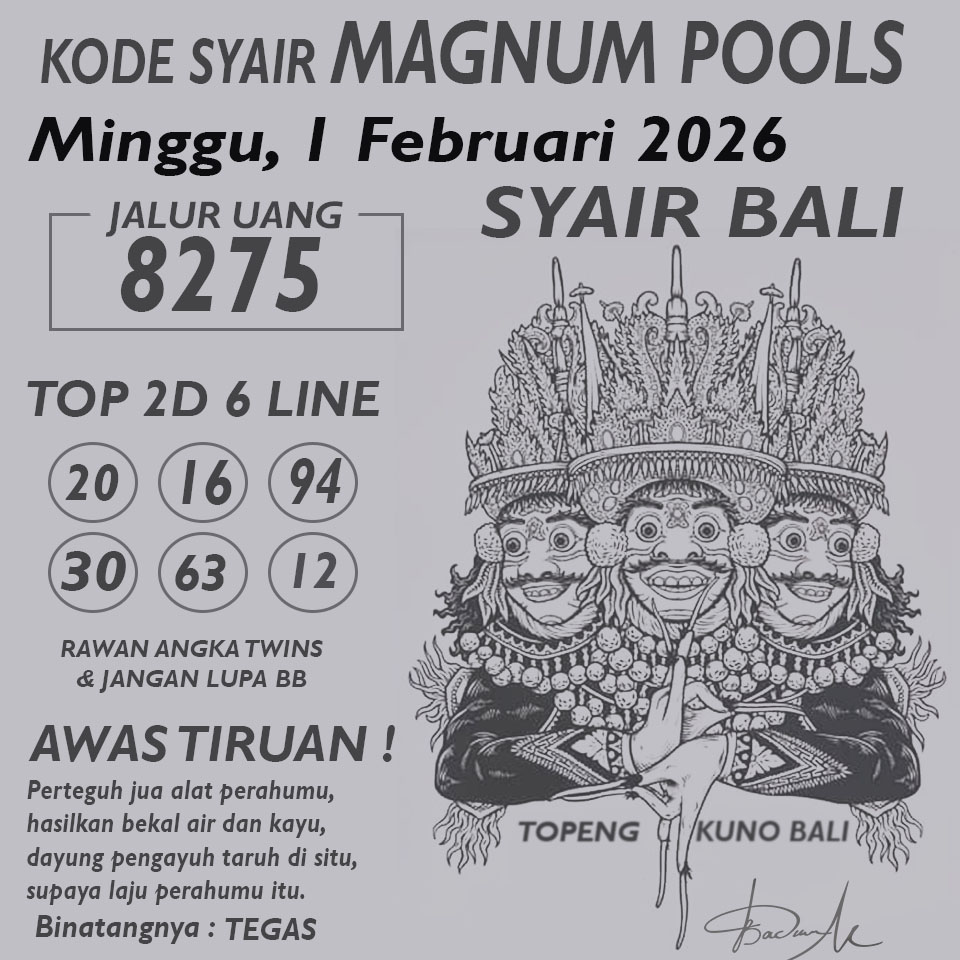 KODE SYAIR MAGNUM POOLS
Minggu, 1 Februari 2026
SYAIR BALI
JALUR UANG
8275
TOP 2D 6 LINE
20 16 94
30 63 12
RAWAN ANGKA TWINS
& JANGAN LUPA BB
AWAS TIRUAN !
Perteguh jua alat perahumu,
hasilkan bekal air dan kayu,
dayung pengayuh taruh di situ,
supaya laju perahumu itu.
Binatangnya : TEGAS
TOPENG KUNO BALI